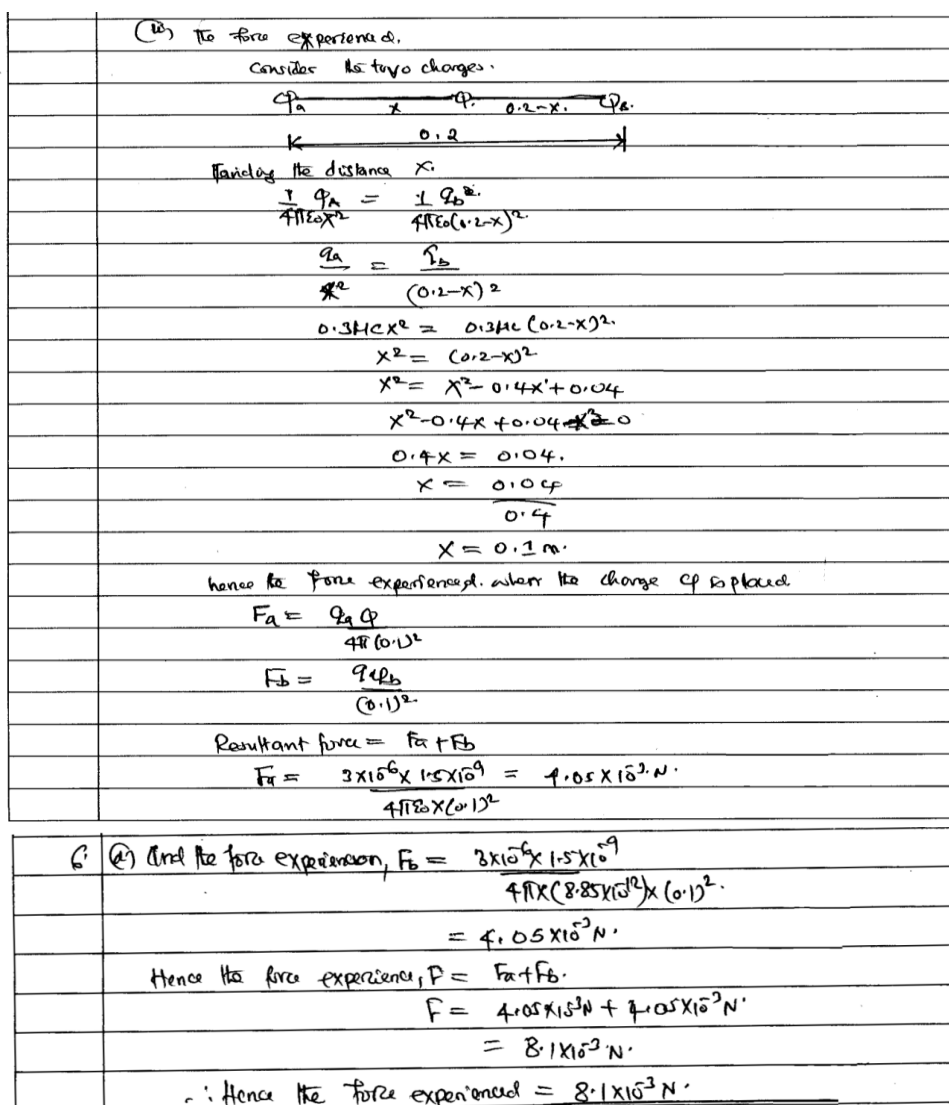 (iii) The force experienced.
Consider the two charges.
qa x q. 0.2-x. qB.
0.2
Finding the distance x.
1 qA / 4πε0x² = 1 qb / 4πε0(0.2-x)².
qa / x² = qb / (0.2-x)²
0.3μcx² = 0.3μc(0.2-x)².
x² = (0.2-x)²
x² = x²-0.4x+0.04
x²-0.4x+0.04-x²=0
0.4x = 0.04.
x = 0.04 / 0.4
x = 0.1m.
hence the force experienced. when the charge q is placed
Fa = qa q / 4π(0.1)²
Fb = q qb / (0.1)².
Resultant force = Fa + Fb
Fa = 3x10⁻⁶ x 1.5x10⁻⁹ / 4πε0x(0.1)² = 4.05x10⁻³.N.
6. (a) And the force experienced, Fb = 3x10⁻⁶ x 1.5x10⁻⁹ / 4πx(8.85x10⁻¹²)x(0.1)².
= 4.05x10⁻³N.
Hence the force experience, F = Fa+Fb.
F = 4.05x10⁻³N + 4.05x10⁻³N.
= 8.1x10⁻³.N.
∴ Hence the force experienced = 8.1x10⁻³N.